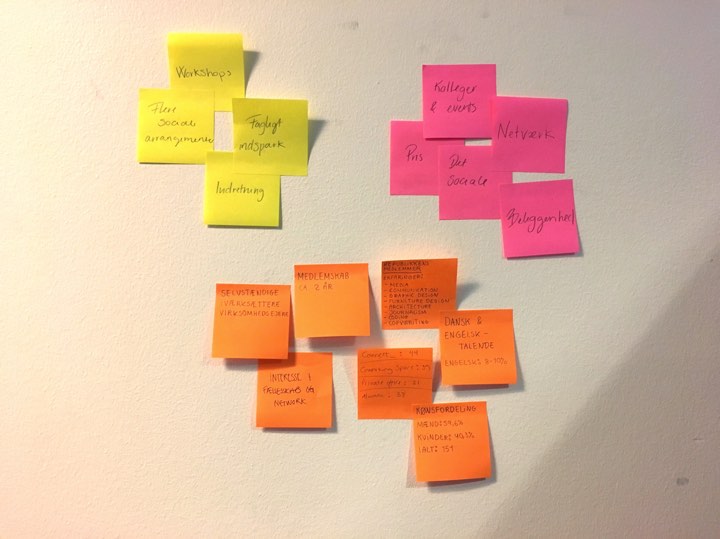 Workshops
Flere
sociale
arrangementer
Fagligt
indspark
Indretning
Kolleger
& events
Netværk
Pris
Det
sociale
Beleggenhed
SELVSTÆNDIGE
IVÆRKSÆTTERE
VIRKSOMHEDSEJERE
MEDLEMSKAB
CA. 2 ÅR
MEDLEMMERS
- MEDIA
- COMMUNICATION
- GRAPHIC DESIGN
- FURNITURE DESIGN
- ARCHITECTURE
- JOURNALISM
- COPYWRITING
DANSK &
ENGELSK-
TALENDE
ENGELSK:
INTERESSE I
FÆLLESSKAB OG
NETWORK
Connect : 44
Coworking Space :
Private office :
KØNSFORDELING
MÆND: 59,6%
KVINDER: 40,4%
IALT: 151